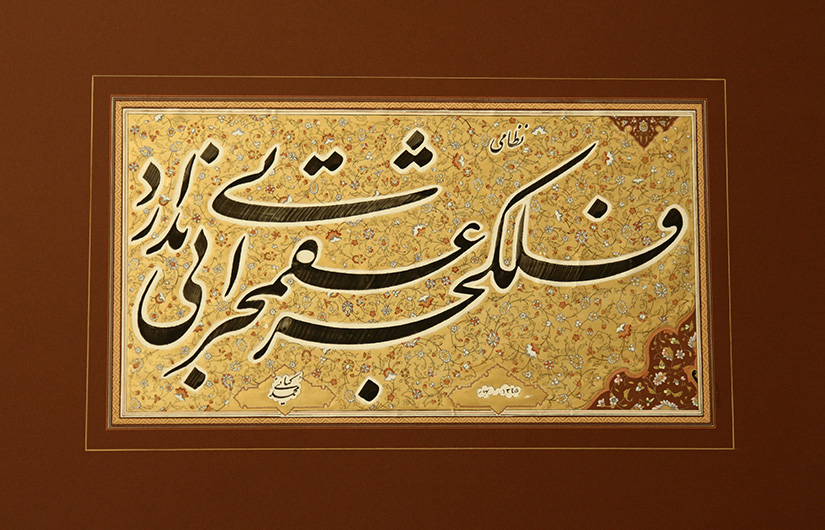 نظامی
فلک جز عشق محرابی ندارد
۱۳۴۵